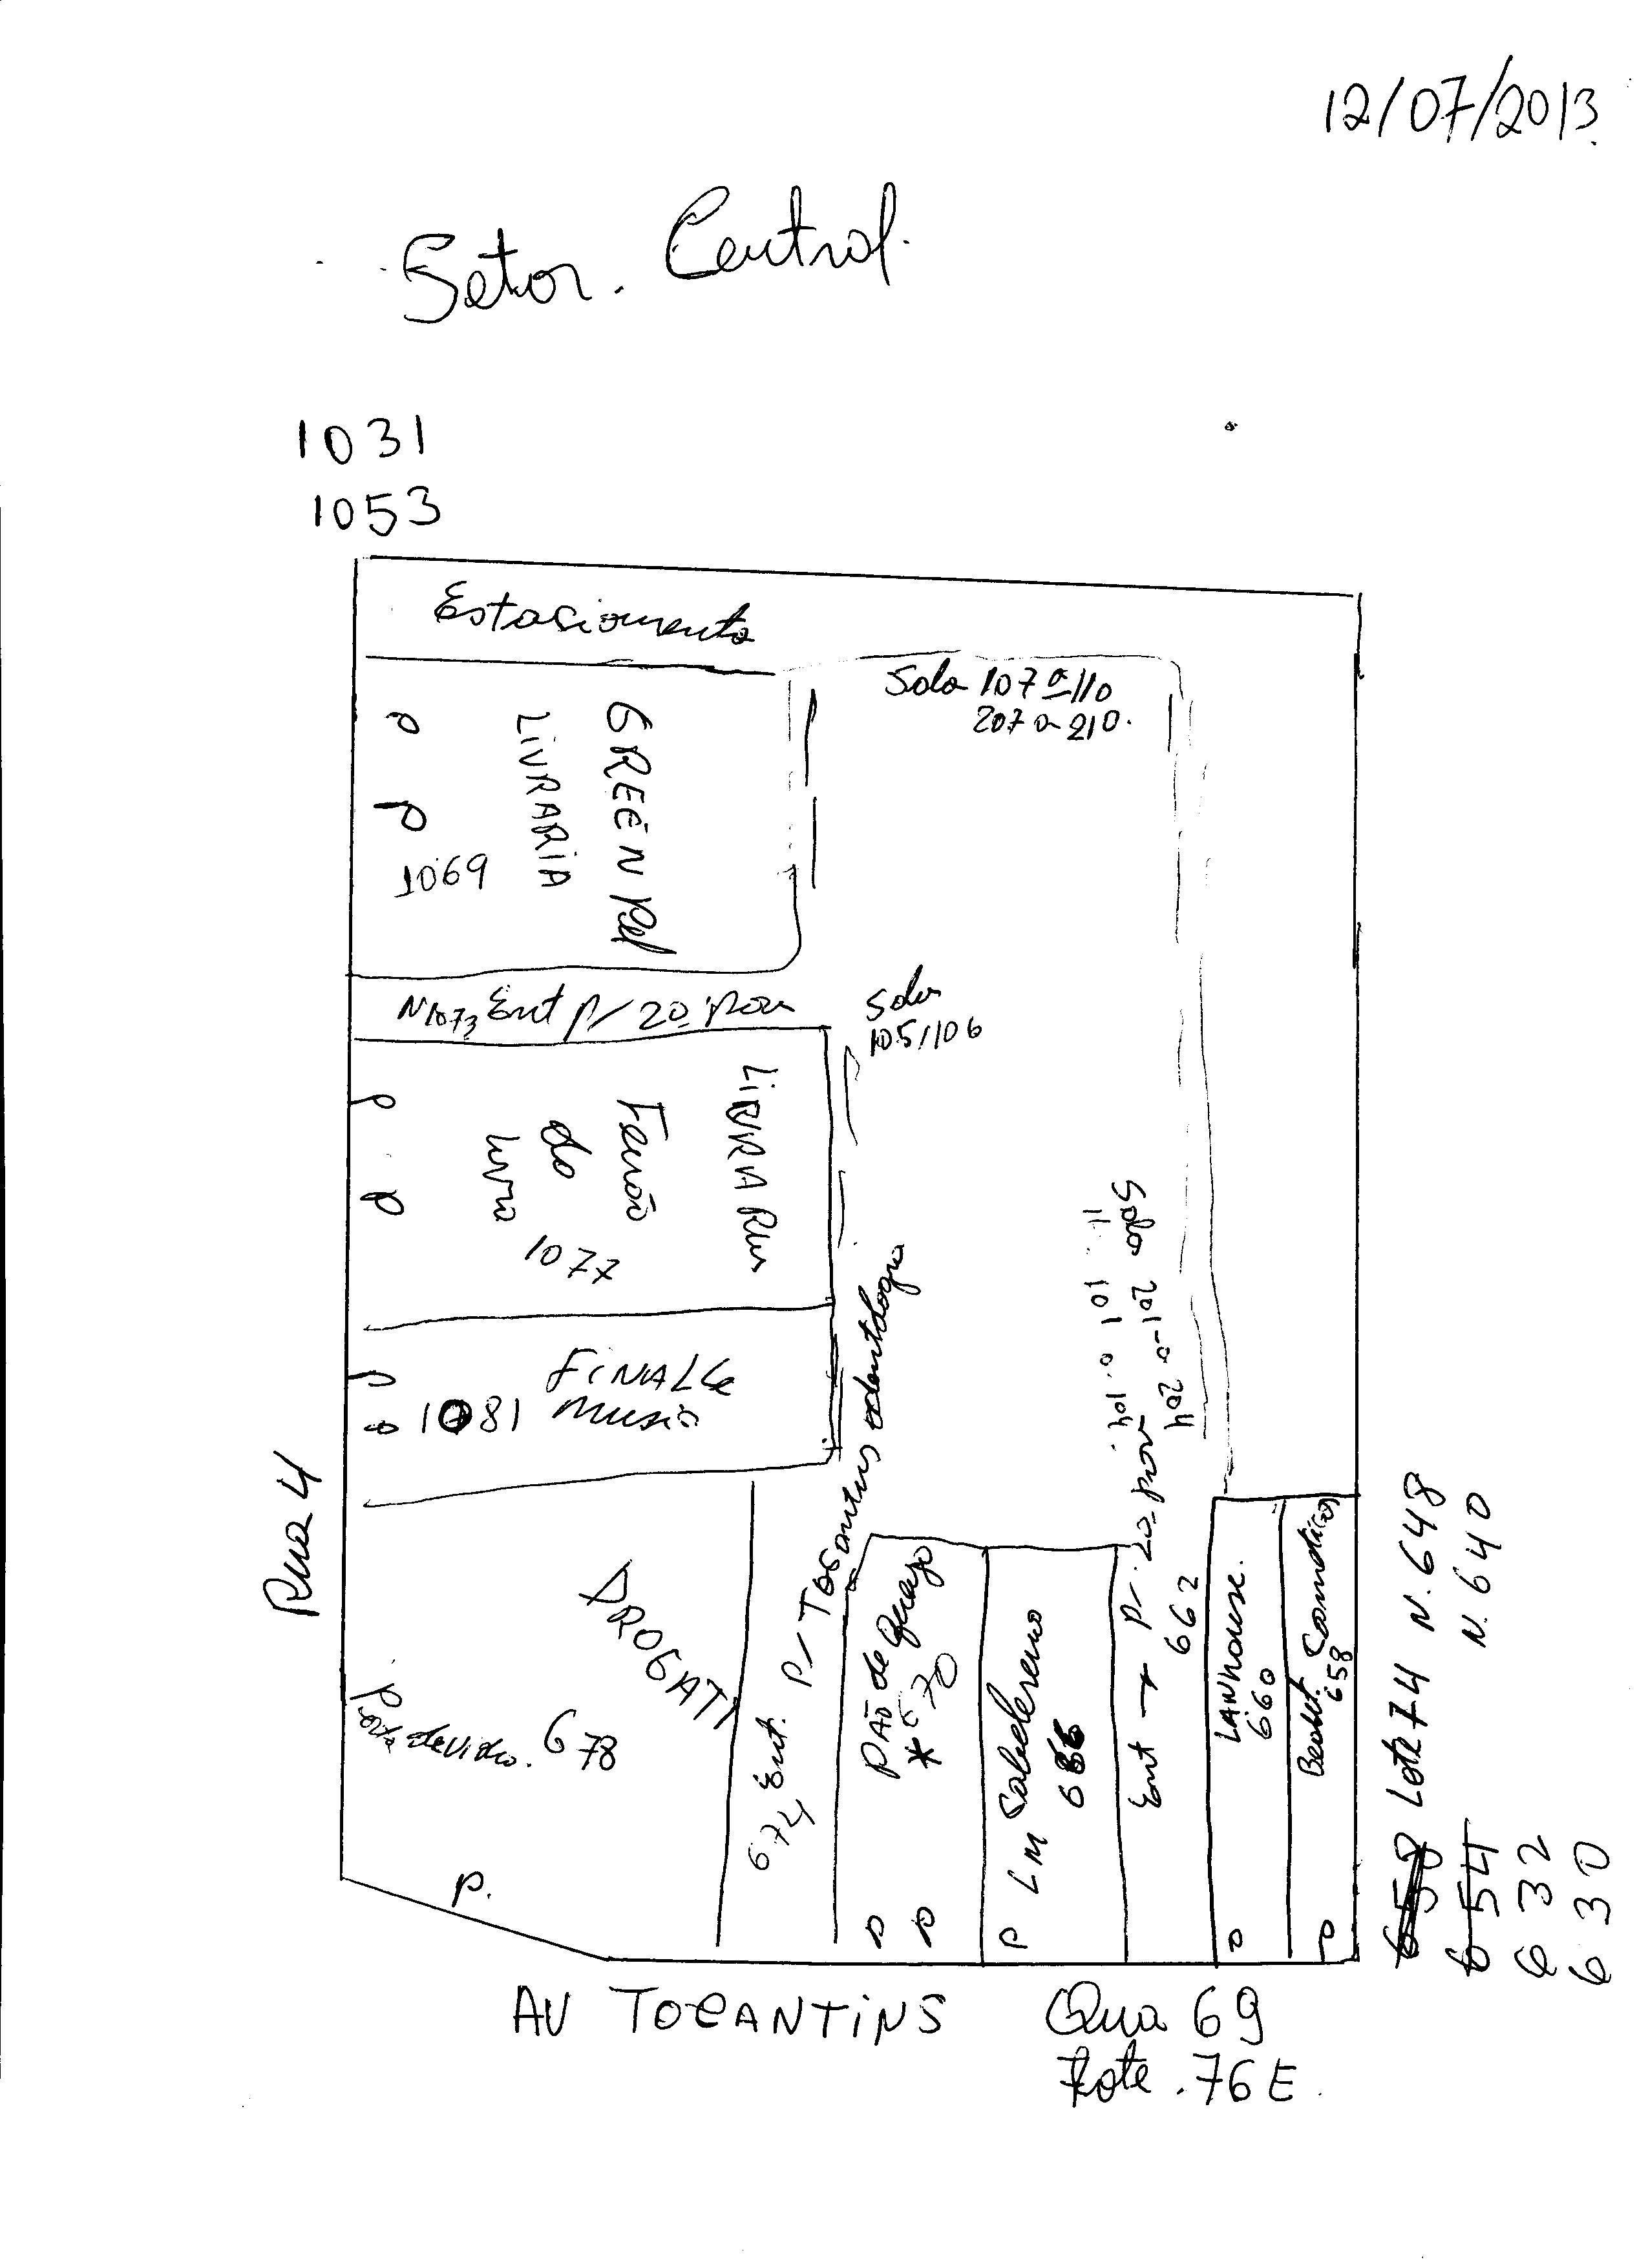 12/07/2013
Setor. Central.
1031
1053
Estacionamento
Sala 107 a 110
207 a 210.
GREEN Pel
LiVRARiA
1069
N 1073 Ent p/ 2º pav
Sala
105/106
LiVRARia
Feirão
do
Livro
1077
FiNALLe
music
1081
Sala 201 a 204
" 101 a 104
Rua 4
DROGATI
Porta de vidro. 678
P.
674 Ent. P/ Tocantins odontologia
PÃO de Queijo
* 670
LM Cabelereiro
666
Ent → p/. 2º pav
662
LANhouse.
660
Cosmeticos
658
N. 648
N. 640
Lote 74
658
654
632
630
AV TOCANTiNS
Qua 69
Lote. 76 E.